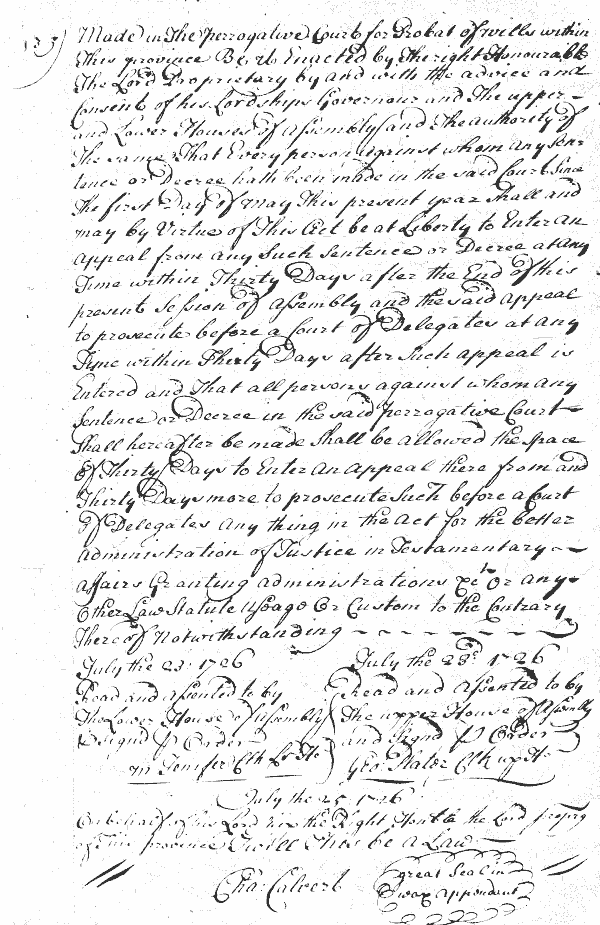 Made in The perrogative Court for Probat of wills within
This province Be it Enacted by the right Honourable
The Lord Proprietary by and with the advice and
Consent of his Lordships Governour and The upper
and Lower Houses of Assembly and The authority of
The same That Every person against whom any Sen-
tence or Decree hath been made in the said Court Since
The first Day of may This present year Shall and
may by Virtue of This Act be at Liberty to Enter an
Appeal from any Such Sentence or Decree at any
Time within Thirty Days after the End of this
present Session of Assembly and the said Appeal
to prosecute before a Court of Delegates at any
Time within Thirty Days after Such appeal is
Entered and That all persons against whom any
Sentence or Decree in the said perrogative Court
Shall hereafter be made Shall be allowed the space
of Thirty Days to Enter an Appeal there from and
Thirty Days more to prosecute Such before a Court
of Delegates any thing in the Act for the better
Administration of Justice in Testamentary
affairs Granting administrations &ct or any
Other Law Statute Usage Or Custom to the Contrary
Thereof Notwithstanding
July the 23 1726
Read and assented to by
The Lower House of Assembly
Signd P Order
m Jenifer Clk Lo Ho
July the 23d 1726
Read and Assented to by
The upper House of Assembly
and Signd P Order
Geo Plater Clk up Ho
July the 25 1726
On behalf of his Lord the Right Honble the Lord Propry
of This province I will This be a Law
Cha: Calvert
great Seal in
wax appendant